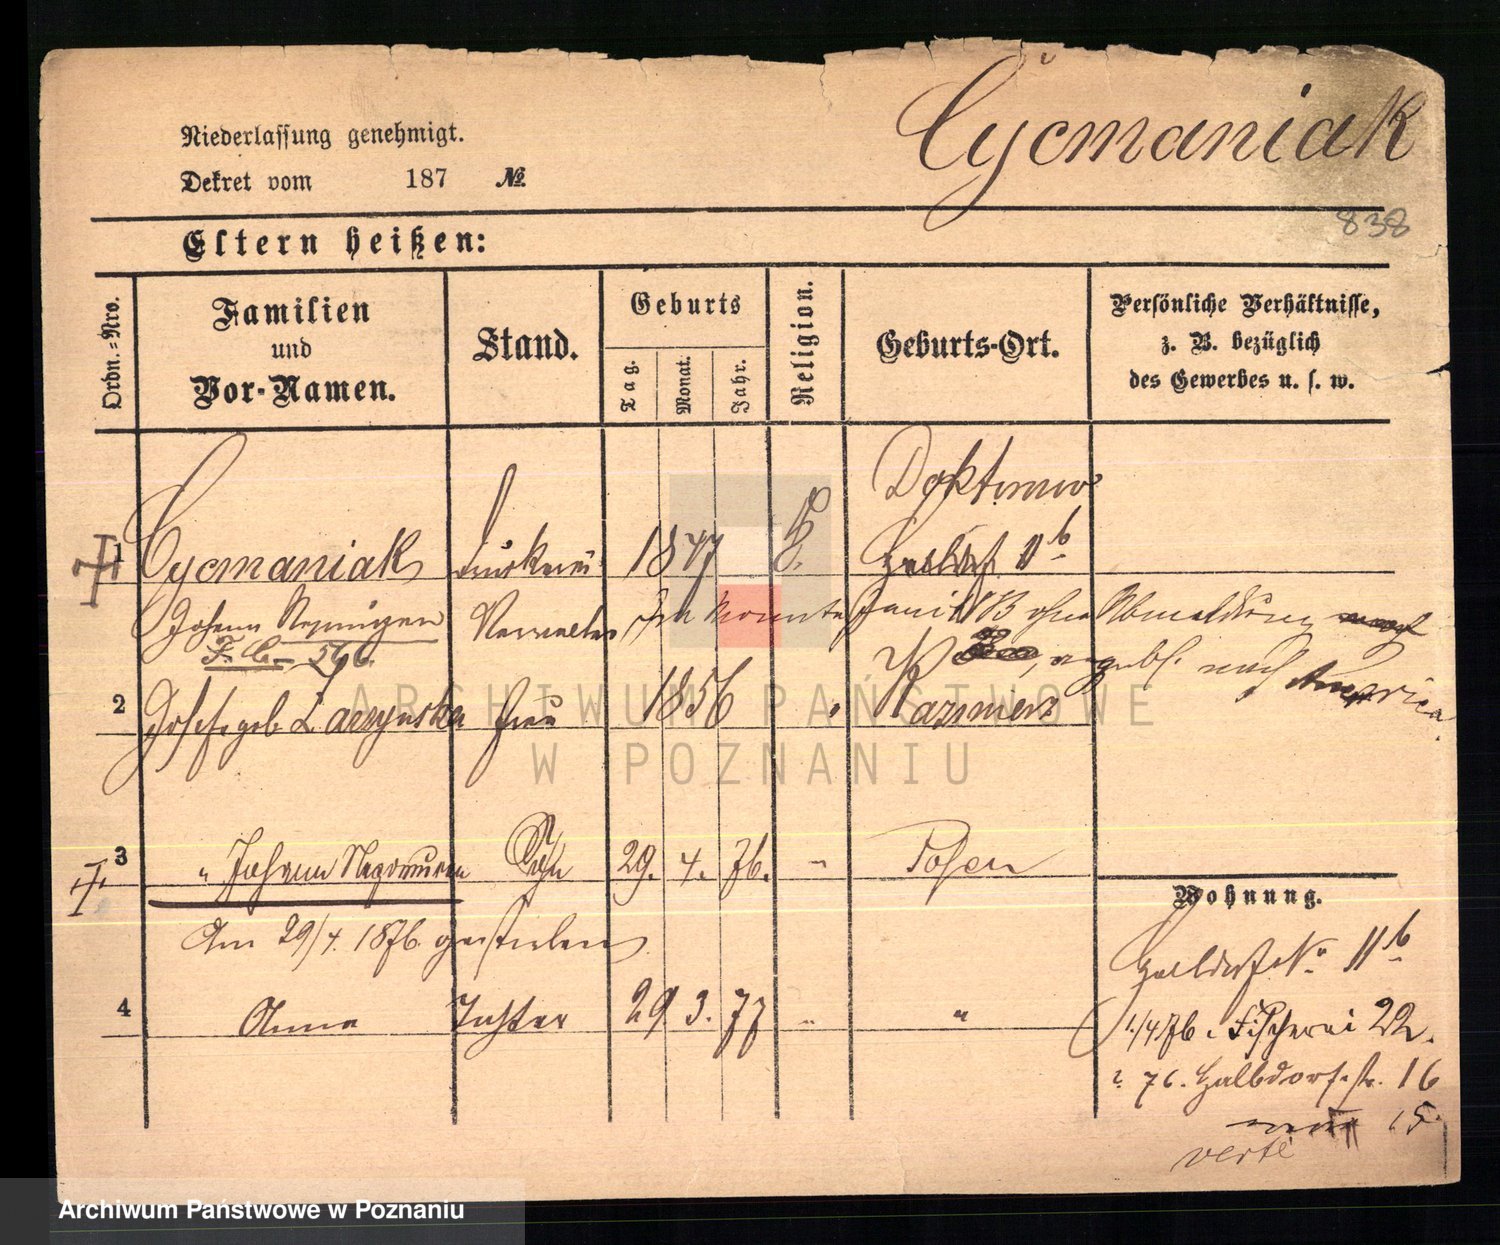 Cycmaniak
Niederlassung genehmigt.
Dekret vom 187 №.
838
Eltern heißen:
Ordn.-Nro.
Familien
und
Vor-Namen.
Stand.
Geburts
Tag.
Monat.
Jahr.
Religion.
Geburts-Ort.
Persönliche Verhältnisse,
z. B. bezüglich
des Gewerbes u. s. w.
1 Cycmaniak 1847
11b
Johann
Im Monate Juni ohne Abmeldung
F. C. 596.
angebl. nach America.
2 Josefa geb. Frau 1856 "
Kazmierz
3 " Johann Nepomucen Sohn 29. 4. 76. " Posen
Am 29/4. 1876. gestorben
4 Anna Tochter 29 3. 77 " "
Wohnung.
11b
1./4 76. Fischerei 22.
76. Halbdorfstr. 16
15.
verte
ARCHIWUM PAŃSTWOWE
W POZNANIU
Archiwum Państwowe w Poznaniu